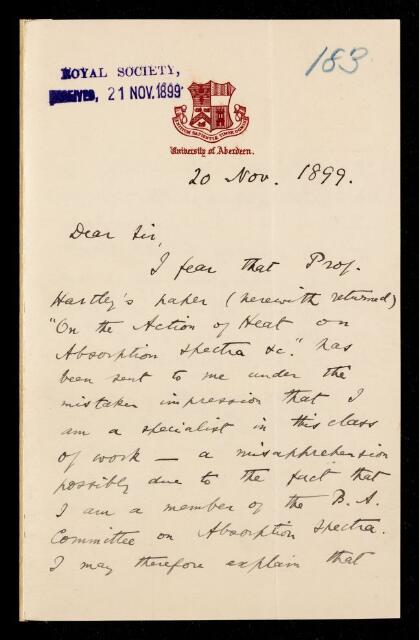 183
ROYAL SOCIETY,
RECEIVED, 21 NOV. 1899
University of Aberdeen.
20 Nov. 1899.
Dear Sir,
I fear that Prof.
Hartley's paper (herewith returned)
"On the Action of Heat on
Absorption Spectra &c." has
been sent to me under the
mistaken impression that I
am a specialist in this class
of work — a misapprehension
possibly due to the fact that
I am a member of the B. A.
Committee on Absorption Spectra.
I may therefore explain that